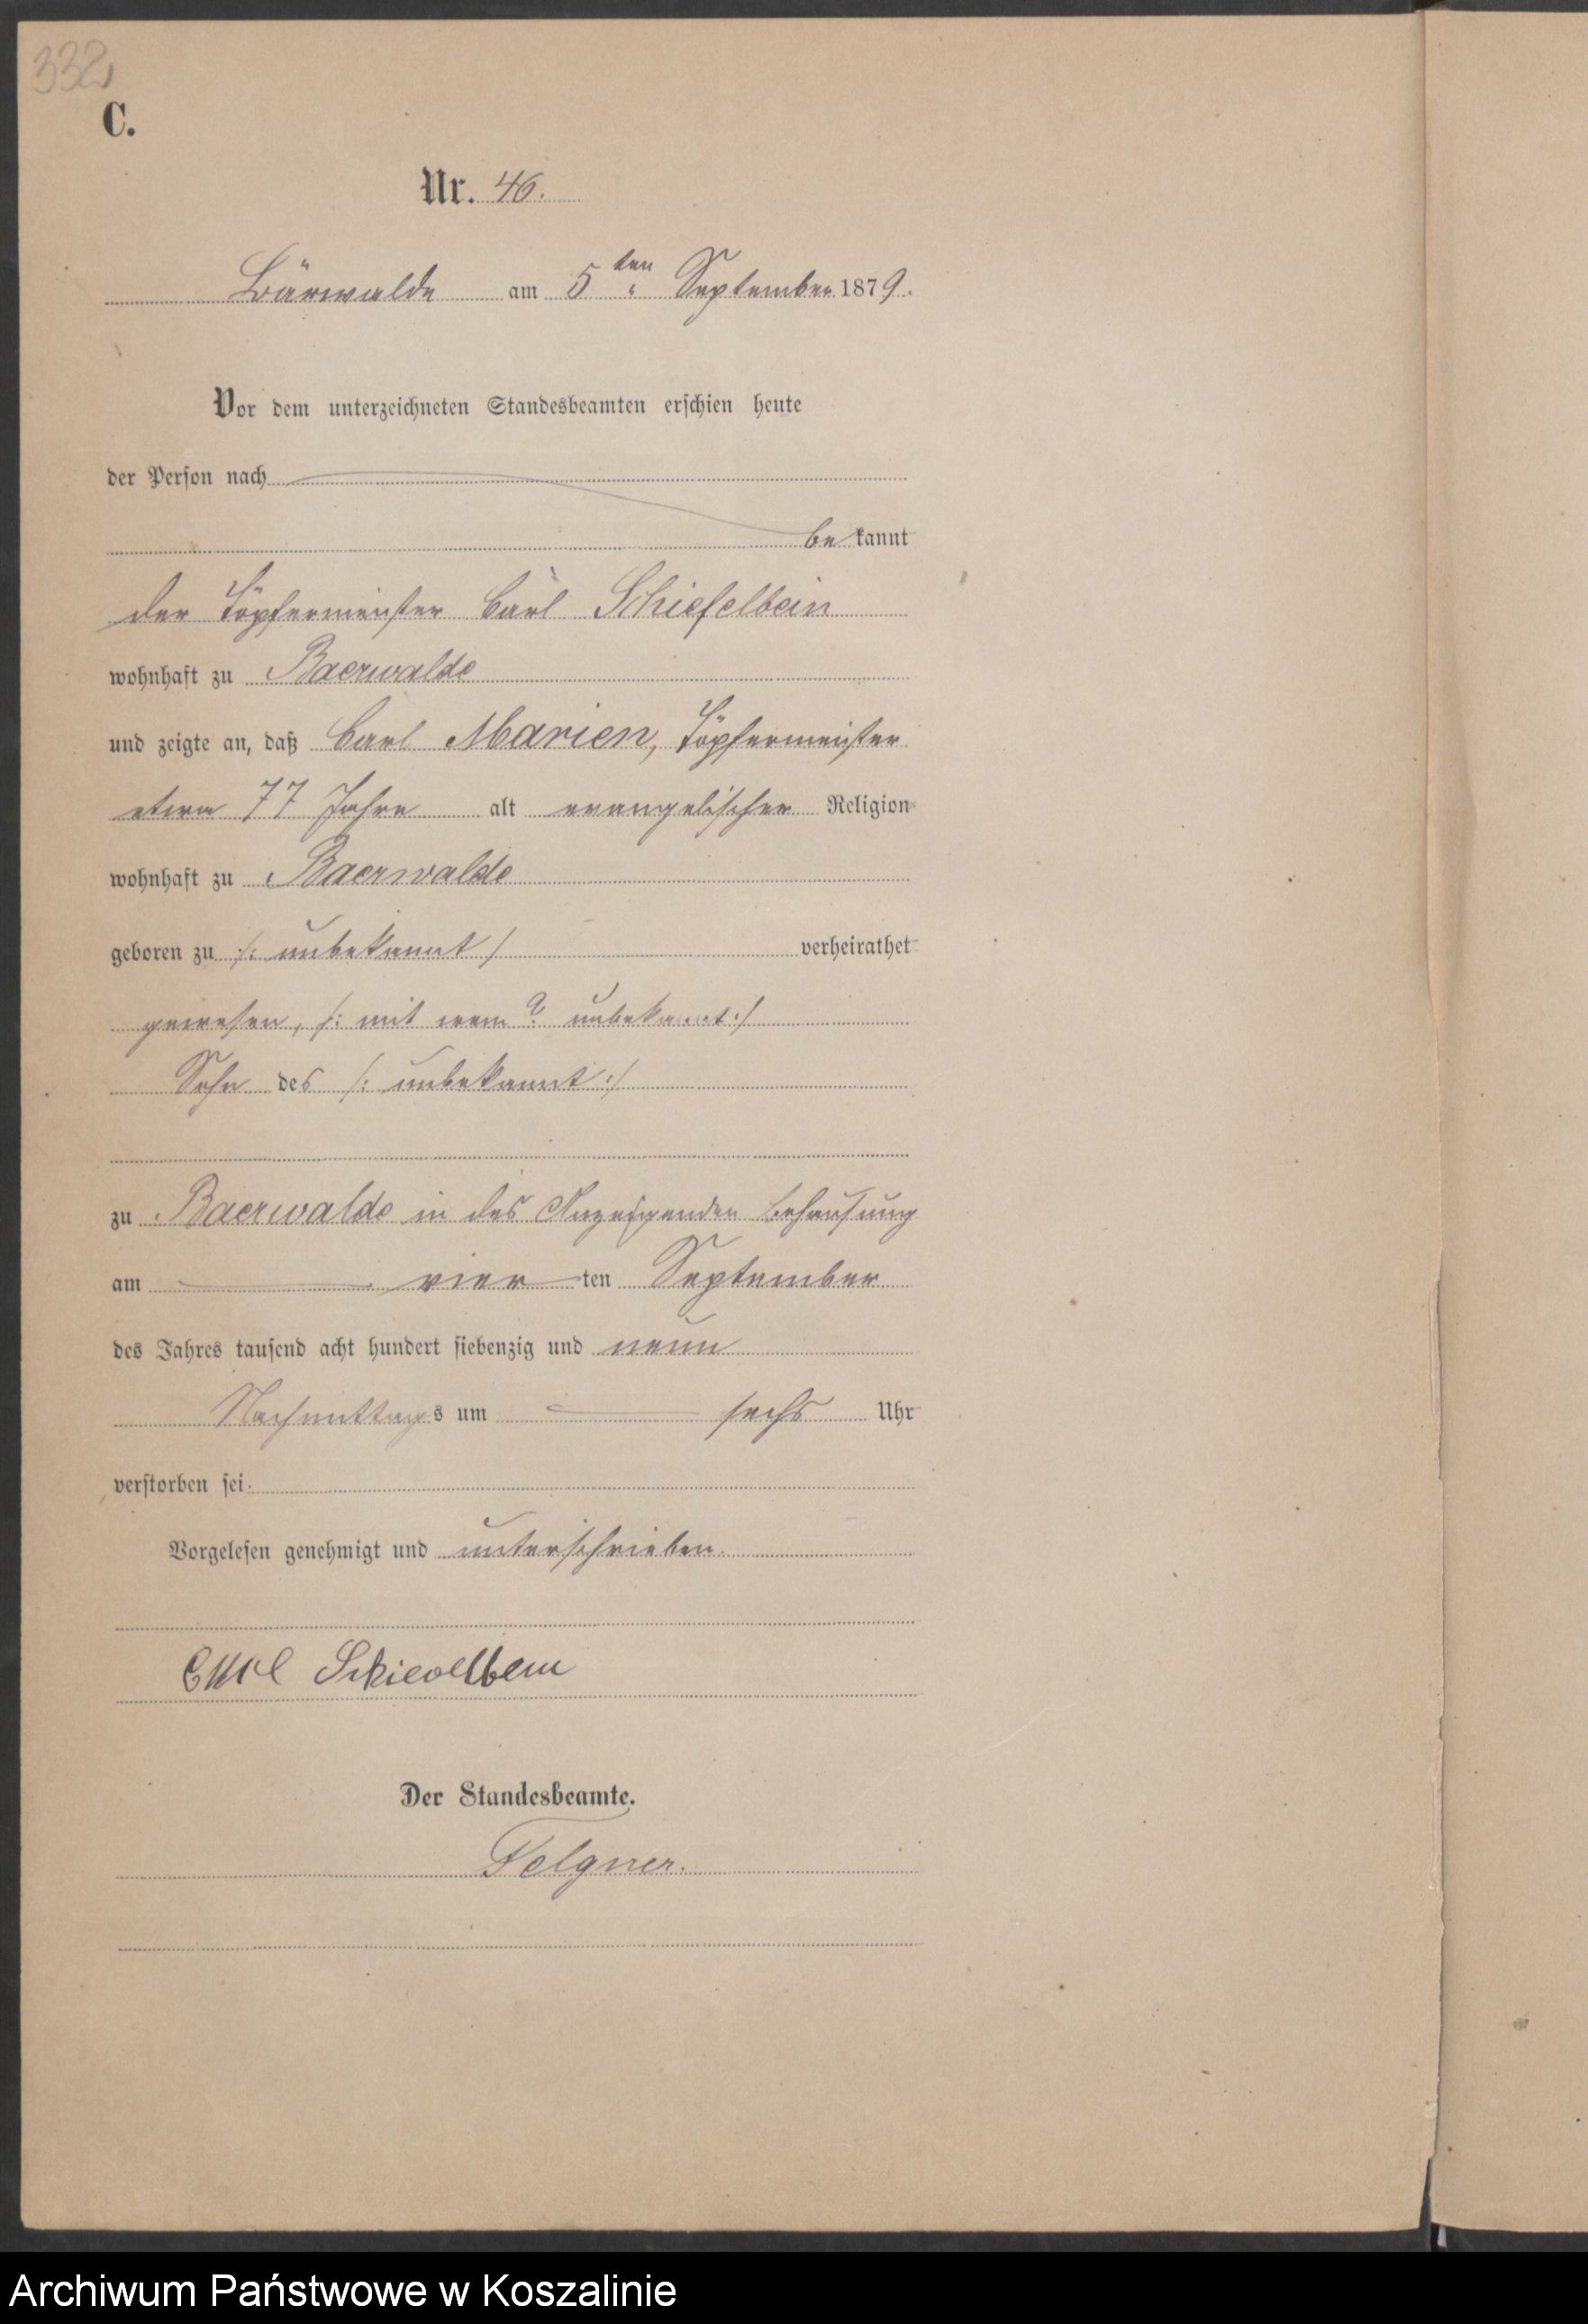 332
C.
Nr. 46.
Bärwalde am 5ten September 1879.
Vor dem unterzeichneten Standesbeamten erschien heute
der Person nach
bekannt
der Töpfermeister Carl Schiefelbein
wohnhaft zu Baerwalde
und zeigte an, daß Carl Marien, Töpfermeister
etwa 77 Jahre alt evangelischer Religion
wohnhaft zu Baerwalde
geboren zu /: unbekannt / verheirathet
gewesen, /: mit wem? unbekannt :/
Sohn des /: unbekannt :/
zu Baerwalde in des Anzeigenden Behausung
am vierten September
des Jahres tausend acht hundert siebenzig und neun
Nachmittags um sechs Uhr
verstorben sei.
Vorgelesen genehmigt und unterschrieben.
Carl Schievelbein
Der Standesbeamte.
Felgner.
Archiwum Państwowe w Koszalinie